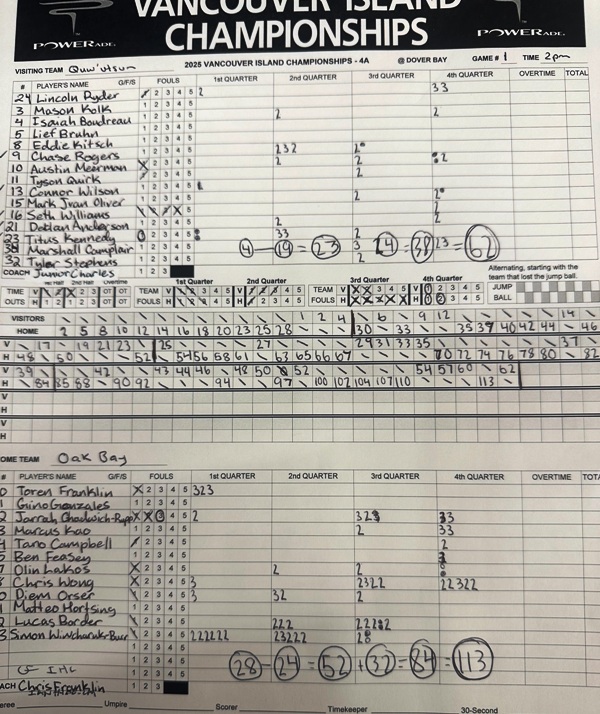 VANCOUVER ISLAND
CHAMPIONSHIPS
POWERADE
POWERADE
VISITING TEAM Quw'utsun 2025 VANCOUVER ISLAND CHAMPIONSHIPS - 4A @ DOVER BAY GAME # 1 TIME 2pm
# PLAYER'S NAME G/F/S FOULS 1st QUARTER 2nd QUARTER 3rd QUARTER 4th QUARTER OVERTIME TOTAL
24 Lincoln Ryder 2 3 4 5 2 33
3 Mason Kolk 1 2 3 4 5
4 Isaiah Boudreau 1 2 3 4 5 2 2
5 Lief Bruhn 1 2 3 4 5
8 Eddie Kitsch 1 2 3 4 5 232 2
9 Chase Rogers 1 2 3 4 5 2 2 2
10 Austin Meerman 2 3 4 5 2
11 Tyson Quirk 1 2 3 4 5
13 Connor Wilson 1 2 3 4 5 2 2
15 Mark Jvan Oliver 1 2 3 4 5
16 Seth Williams 5
21 Deblan Anderson 1 2 3 4 5 2
23 Titus Kennedy 2 3 4 5 33 2
Marshall Complair 1 2 3 4 5 2 3 23
32 Tyler Stephens 1 2 3 4 5 2
4 19 = 23 38 62
COACH Junior Charles 1 2 3
Alternating, starting with the team that lost the jump ball.
1st Quarter 2nd Quarter 3rd Quarter 4th Quarter
TIME OUTS V H OT OT TEAM FOULS V H TEAM FOULS V H JUMP BALL
VISITORS 1 2 4 6 9 12 14
HOME 2 5 8 10 12 14 16 18 20 23 25 28 30 33 35 37 40 42 44 46
V 17 19 21 23 25 27 29 31 33 35 37
H 48 50 52 54 56 58 61 63 65 66 67 70 72 74 76 78 80 82
V 39 42 43 44 46 48 50 52 54 57 60 62
H 84 85 88 90 92 94 97 100 102 104 107 110 113
V
H
V
H
HOME TEAM Oak Bay
# PLAYER'S NAME G/F/S FOULS 1st QUARTER 2nd QUARTER 3rd QUARTER 4th QUARTER OVERTIME TOTAL
0 Toren Franklin 2 3 4 5 323
1 Gino Gonzales 1 2 3 4 5
2 Jarrah Chadwich-Rupp 4 5 2 32 33
3 Marcus Kao 1 2 3 4 5 2 33
4 Tano Campbell 2 3 4 5 2
5 Ben Feasey 1 2 3 4 5
7 Olin Lakos 2 3 4 5 2 2
8 Chris Wong 2 3 4 5 3 2322 22322
0 Diem Orser 2 3 4 5 3 32 2
1 Matteo Hortsing 1 2 3 4 5
2 Lucas Border 2 3 4 5 222
3 Simon 2 3 4 5 222222 23222 2
1 2 3 4 5
1 2 3 4 5
1 2 3 4 5
28 24 = 52 + 32 = 84 = 113
COACH Chris Franklin 1 2 3
Referee Umpire Scorer Timekeeper 30-Second